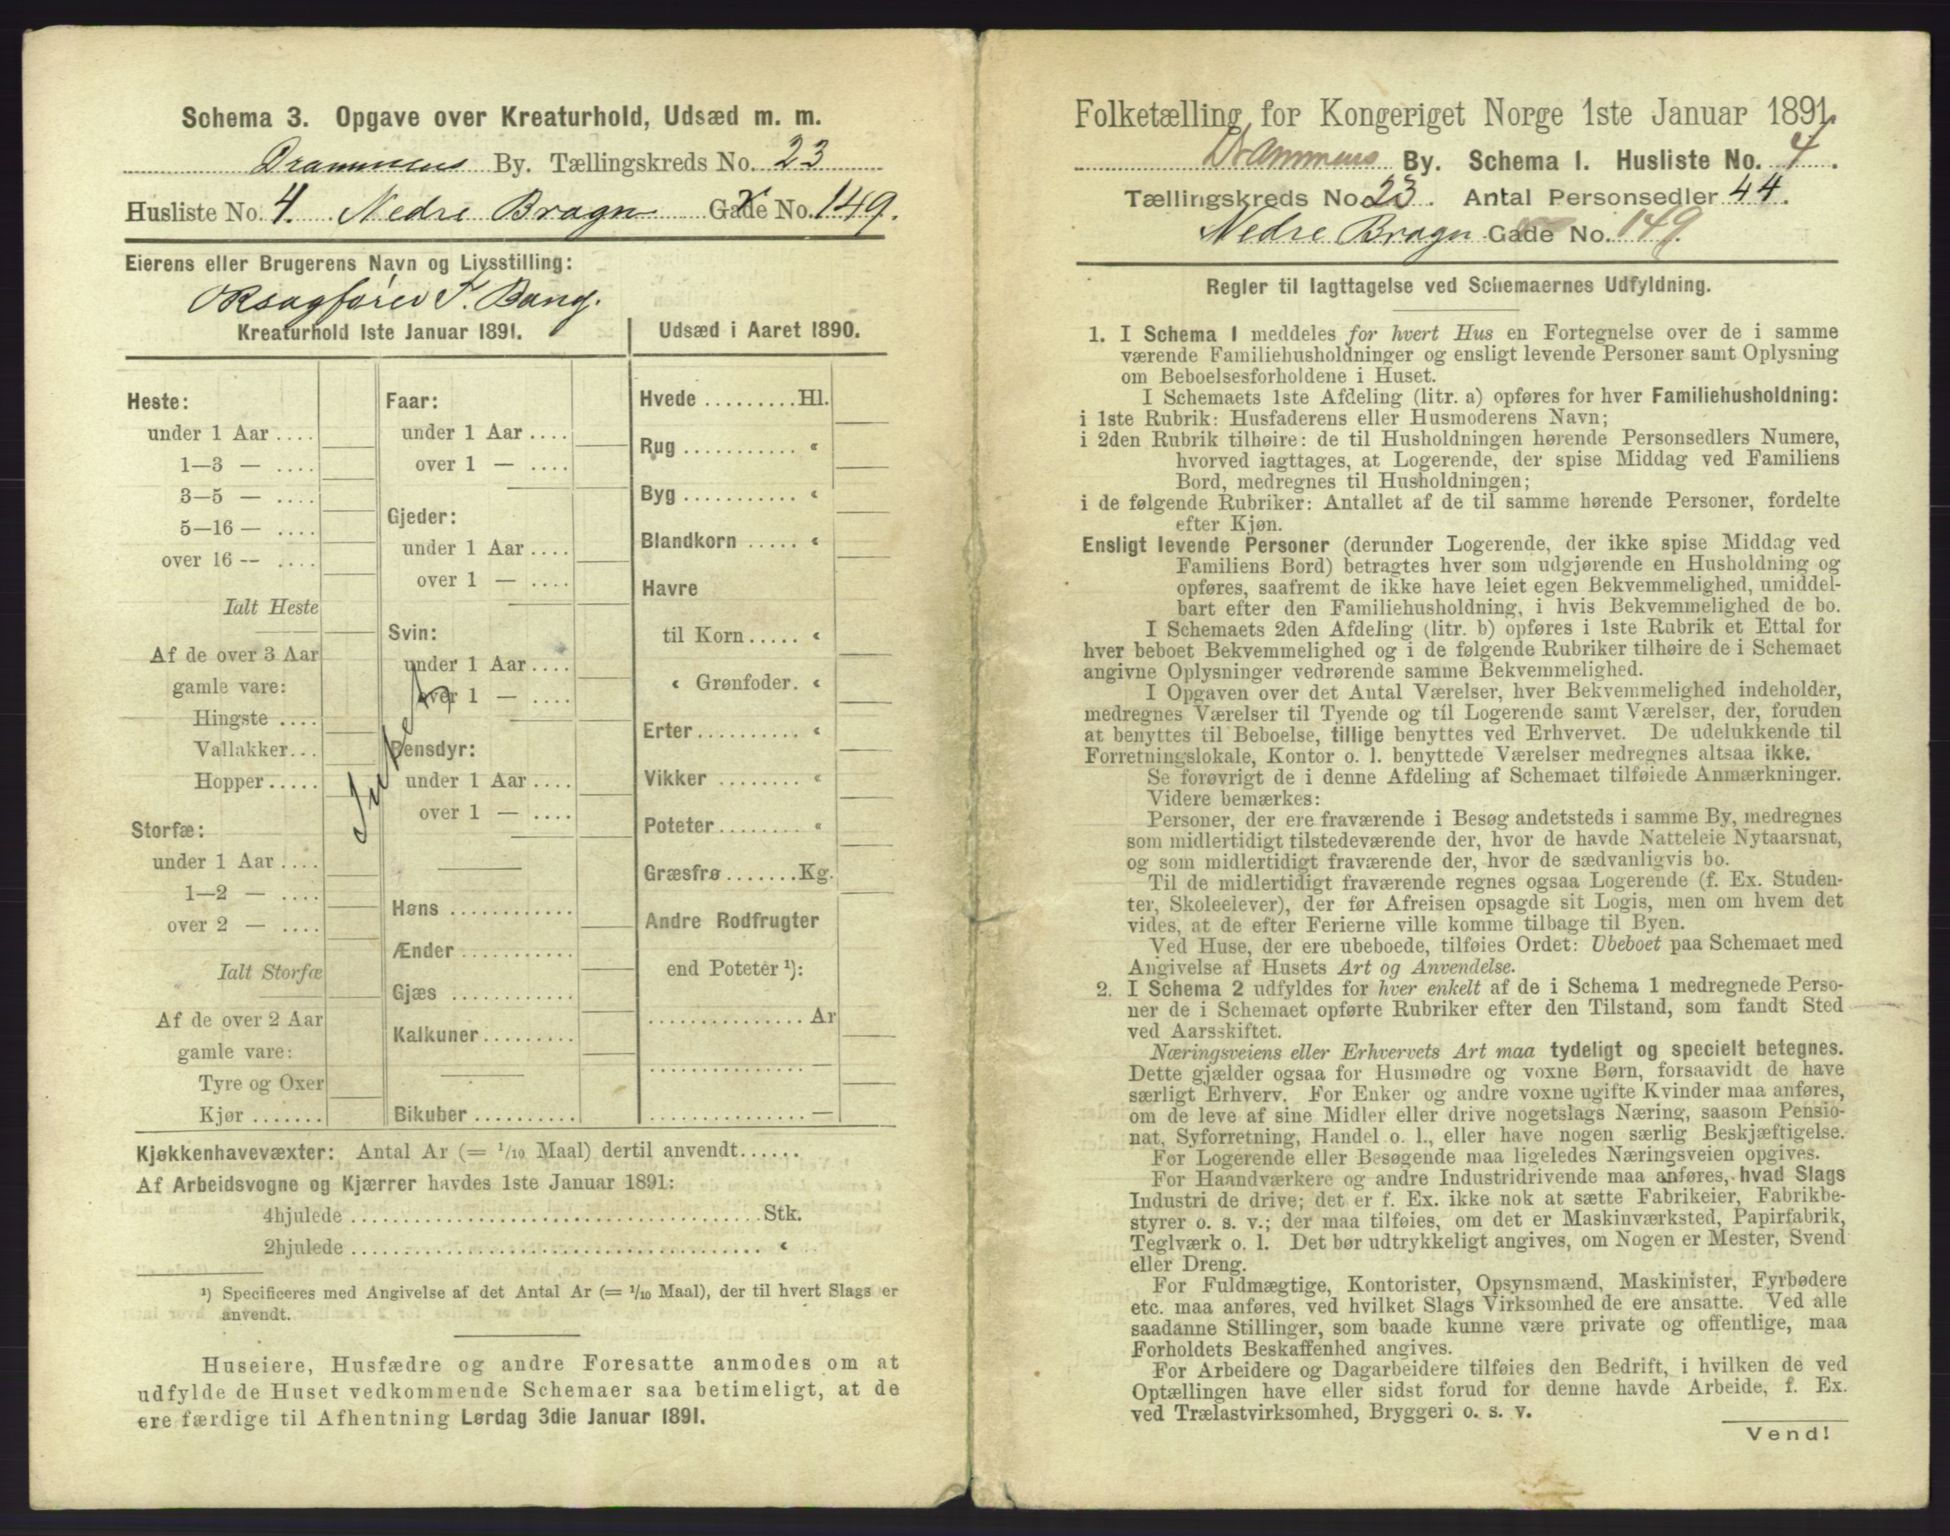 Schema 3. Opgave over Kreaturhold, Udsæd m. m.
Drammens By. Tællingskreds No. 23
Husliste No. 4. Nedre Bragn Gade No. 149.
Eierens eller Brugerens Navn og Livsstilling:
ORsagfører F. Bang.
Kreaturhold 1ste Januar 1891.
Heste:
under 1 Aar ....
1—3 — ....
3—5 — ....
5—16 — ....
over 16 -- ....
Ialt Heste
Af de over 3 Aar
gamle vare:
Hingste ....
Vallakker...
Hopper.....
Storfæ:
under 1 Aar ....
1—2 — ....
over 2 — ....
Ialt Storfæ
Af de over 2 Aar
gamle vare:
Tyre og Oxer
Kjør .......
Faar:
under 1 Aar ....
over 1 — ....
Gjeder:
under 1 Aar ....
over 1 — ....
Svin:
under 1 Aar ....
over 1 — ....
Rensdyr:
under 1 Aar ....
over 1 — ....
Intet
Høns ............
Ænder ............
Gjæs ............
Kalkuner.........
Bikuber ..........
Udsæd i Aaret 1890.
Hvede .........Hl.
Rug ........... «
Byg ........... «
Blandkorn ..... «
Havre
til Korn ..... «
« Grønfoder. «
Erter.......... «
Vikker ........ «
Poteter........ «
Græsfrø .......Kg.
Andre Rodfrugter
end Poteter ¹):
............... Ar
............... —
............... —
Kjøkkenhavevæxter: Antal Ar (= 1/10 Maal) dertil anvendt......
Af Arbeidsvogne og Kjærrer havdes 1ste Januar 1891:
4hjulede ........................................Stk.
2hjulede ........................................ «
¹) Specificeres med Angivelse af det Antal Ar (= 1/10 Maal), der til hvert Slags er
anvendt.
Huseiere, Husfædre og andre Foresatte anmodes om at
udfylde de Huset vedkommende Schemaer saa betimeligt, at de
ere færdige til Afhentning Lørdag 3die Januar 1891.
Folketælling for Kongeriget Norge 1ste Januar 1891.
Drammens By. Schema 1. Husliste No. 4.
Tællingskreds No. 23. Antal Personsedler 44.
Nedre Bragn Gade No. 149.
Regler til Iagttagelse ved Schemaernes Udfyldning.
1. I Schema 1 meddeles for hvert Hus en Fortegnelse over de i samme
værende Familiehusholdninger og ensligt levende Personer samt Oplysning
om Beboelsesforholdene i Huset.
I Schemaets 1ste Afdeling (litr. a) opføres for hver Familiehusholdning:
i 1ste Rubrik: Husfaderens eller Husmoderens Navn;
i 2den Rubrik tilhøire: de til Husholdningen hørende Personsedlers Numere,
hvorved iagttages, at Logerende, der spise Middag ved Familiens
Bord, medregnes til Husholdningen;
i de følgende Rubriker: Antallet af de til samme hørende Personer, fordelte
efter Kjøn.
Ensligt levende Personer (derunder Logerende, der ikke spise Middag ved
Familiens Bord) betragtes hver som udgjørende en Husholdning og
opføres, saafremt de ikke have leiet egen Bekvemmelighed, umiddel-
bart efter den Familiehusholdning, i hvis Bekvemmelighed de bo.
I Schemaets 2den Afdeling (litr. b) opføres i 1ste Rubrik et Ettal for
hver beboet Bekvemmelighed og i de følgende Rubriker tilhøire de i Schemaet
angivne Oplysninger vedrørende samme Bekvemmelighed.
I Opgaven over det Antal Værelser, hver Bekvemmelighed indeholder,
medregnes Værelser til Tyende og til Logerende samt Værelser, der, foruden
at benyttes til Beboelse, tillige benyttes ved Erhvervet. De udelukkende til
Forretningslokale, Kontor o. l. benyttede Værelser medregnes altsaa ikke.
Se forøvrigt de i denne Afdeling af Schemaet tilføiede Anmærkninger.
Videre bemærkes:
Personer, der ere fraværende i Besøg andetsteds i samme By, medregnes
som midlertidigt tilstedeværende der, hvor de havde Natteleie Nytaarsnat,
og som midlertidigt fraværende der, hvor de sædvanligvis bo.
Til de midlertidigt fraværende regnes ogsaa Logerende (f. Ex. Studen-
ter, Skoleelever), der før Afreisen opsagde sit Logis, men om hvem det
vides, at de efter Ferierne ville komme tilbage til Byen.
Ved Huse, der ere ubeboede, tilføies Ordet: Ubeboet paa Schemaet med
Angivelse af Husets Art og Anvendelse.
2. I Schema 2 udfyldes for hver enkelt af de i Schema 1 medregnede Perso-
ner de i Schemaet opførte Rubriker efter den Tilstand, som fandt Sted
ved Aarsskiftet.
Næringsveiens eller Erhvervets Art maa tydeligt og specielt betegnes.
Dette gjælder ogsaa for Husmødre og voxne Børn, forsaavidt de have
særligt Erhverv. For Enker og andre voxne ugifte Kvinder maa anføres,
om de leve af sine Midler eller drive nogetslags Næring, saasom Pensio-
nat, Syforretning, Handel o. l., eller have nogen særlig Beskjæftigelse.
For Logerende eller Besøgende maa ligeledes Næringsveien opgives.
For Haandværkere og andre Industridrivende maa anføres, hvad Slags
Industri de drive; det er f. Ex. ikke nok at sætte Fabrikeier, Fabrikbe-
styrer o. s. v.; der maa tilføies, om det er Maskinværksted, Papirfabrik,
Teglværk o. l. Det bør udtrykkeligt angives, om Nogen er Mester, Svend
eller Dreng.
For Fuldmægtige, Kontorister, Opsynsmænd, Maskinister, Fyrbødere
etc. maa anføres, ved hvilket Slags Virksomhed de ere ansatte. Ved alle
saadanne Stillinger, som baade kunne være private og offentlige, maa
Forholdets Beskaffenhed angives.
For Arbeidere og Dagarbeidere tilføies den Bedrift, i hvilken de ved
Optællingen have eller sidst forud for denne havde Arbeide, f. Ex.
ved Trælastvirksomhed, Bryggeri o. s. v.
Vend!